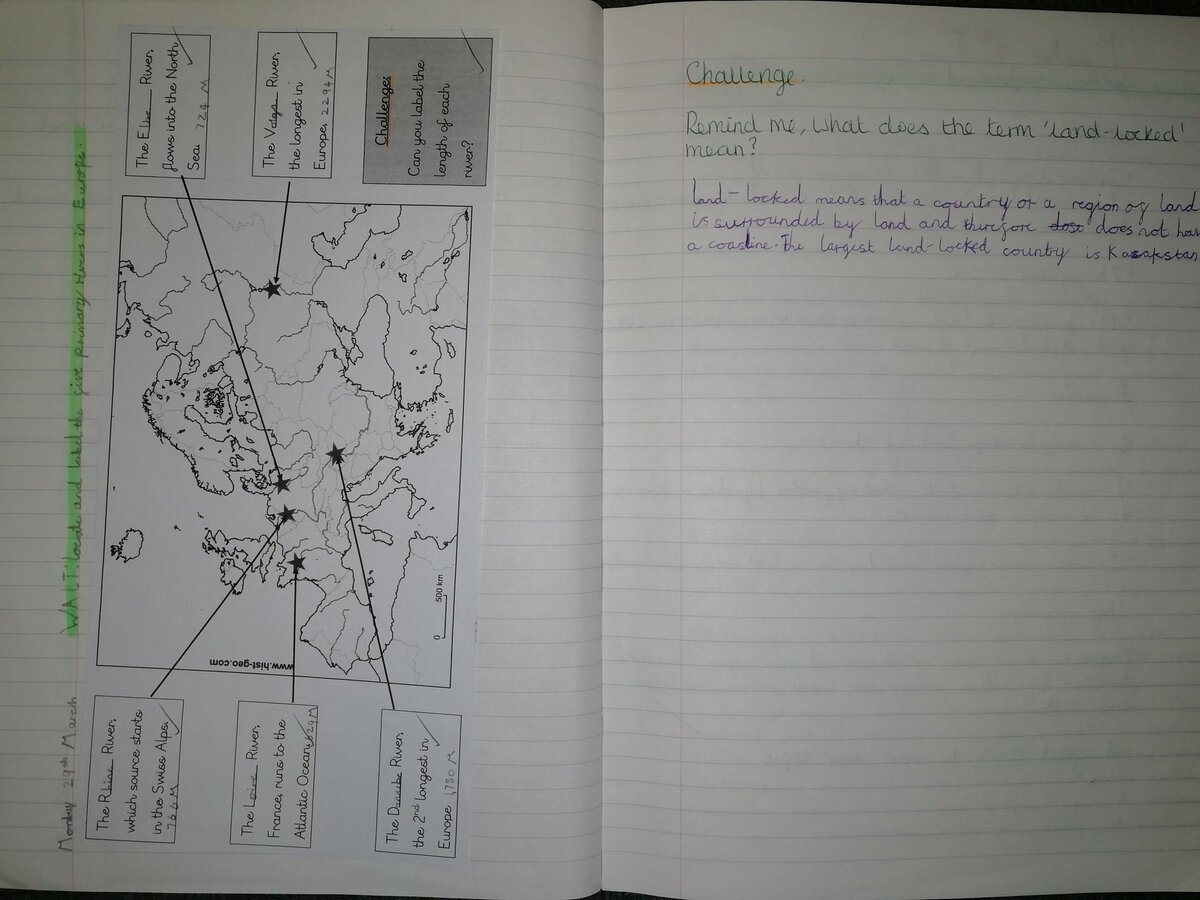 Monday 29th March
WALT: locate and label the five primary rivers in Europe.
The Elbe River,
flows into the North
Sea. 724 M
The Volga River,
the longest in
Europe. 2294M
Challenge:
Can you label the
length of each
river?
www.hist-geo.com
0 500 km
The Rhine River,
which source starts
in the Swiss Alps.
766 M
The Loire River,
France, runs to the
Atlantic Ocean. 629M
The Danube River,
the 2nd longest in
Europe 1,780 M
Challenge.
Remind me, What does the term 'land-locked'
mean?
land-locked means that a country or a region of land
is surrounded by land and therefore does not hav
a coastline. The largest land-locked country is Kazakstan